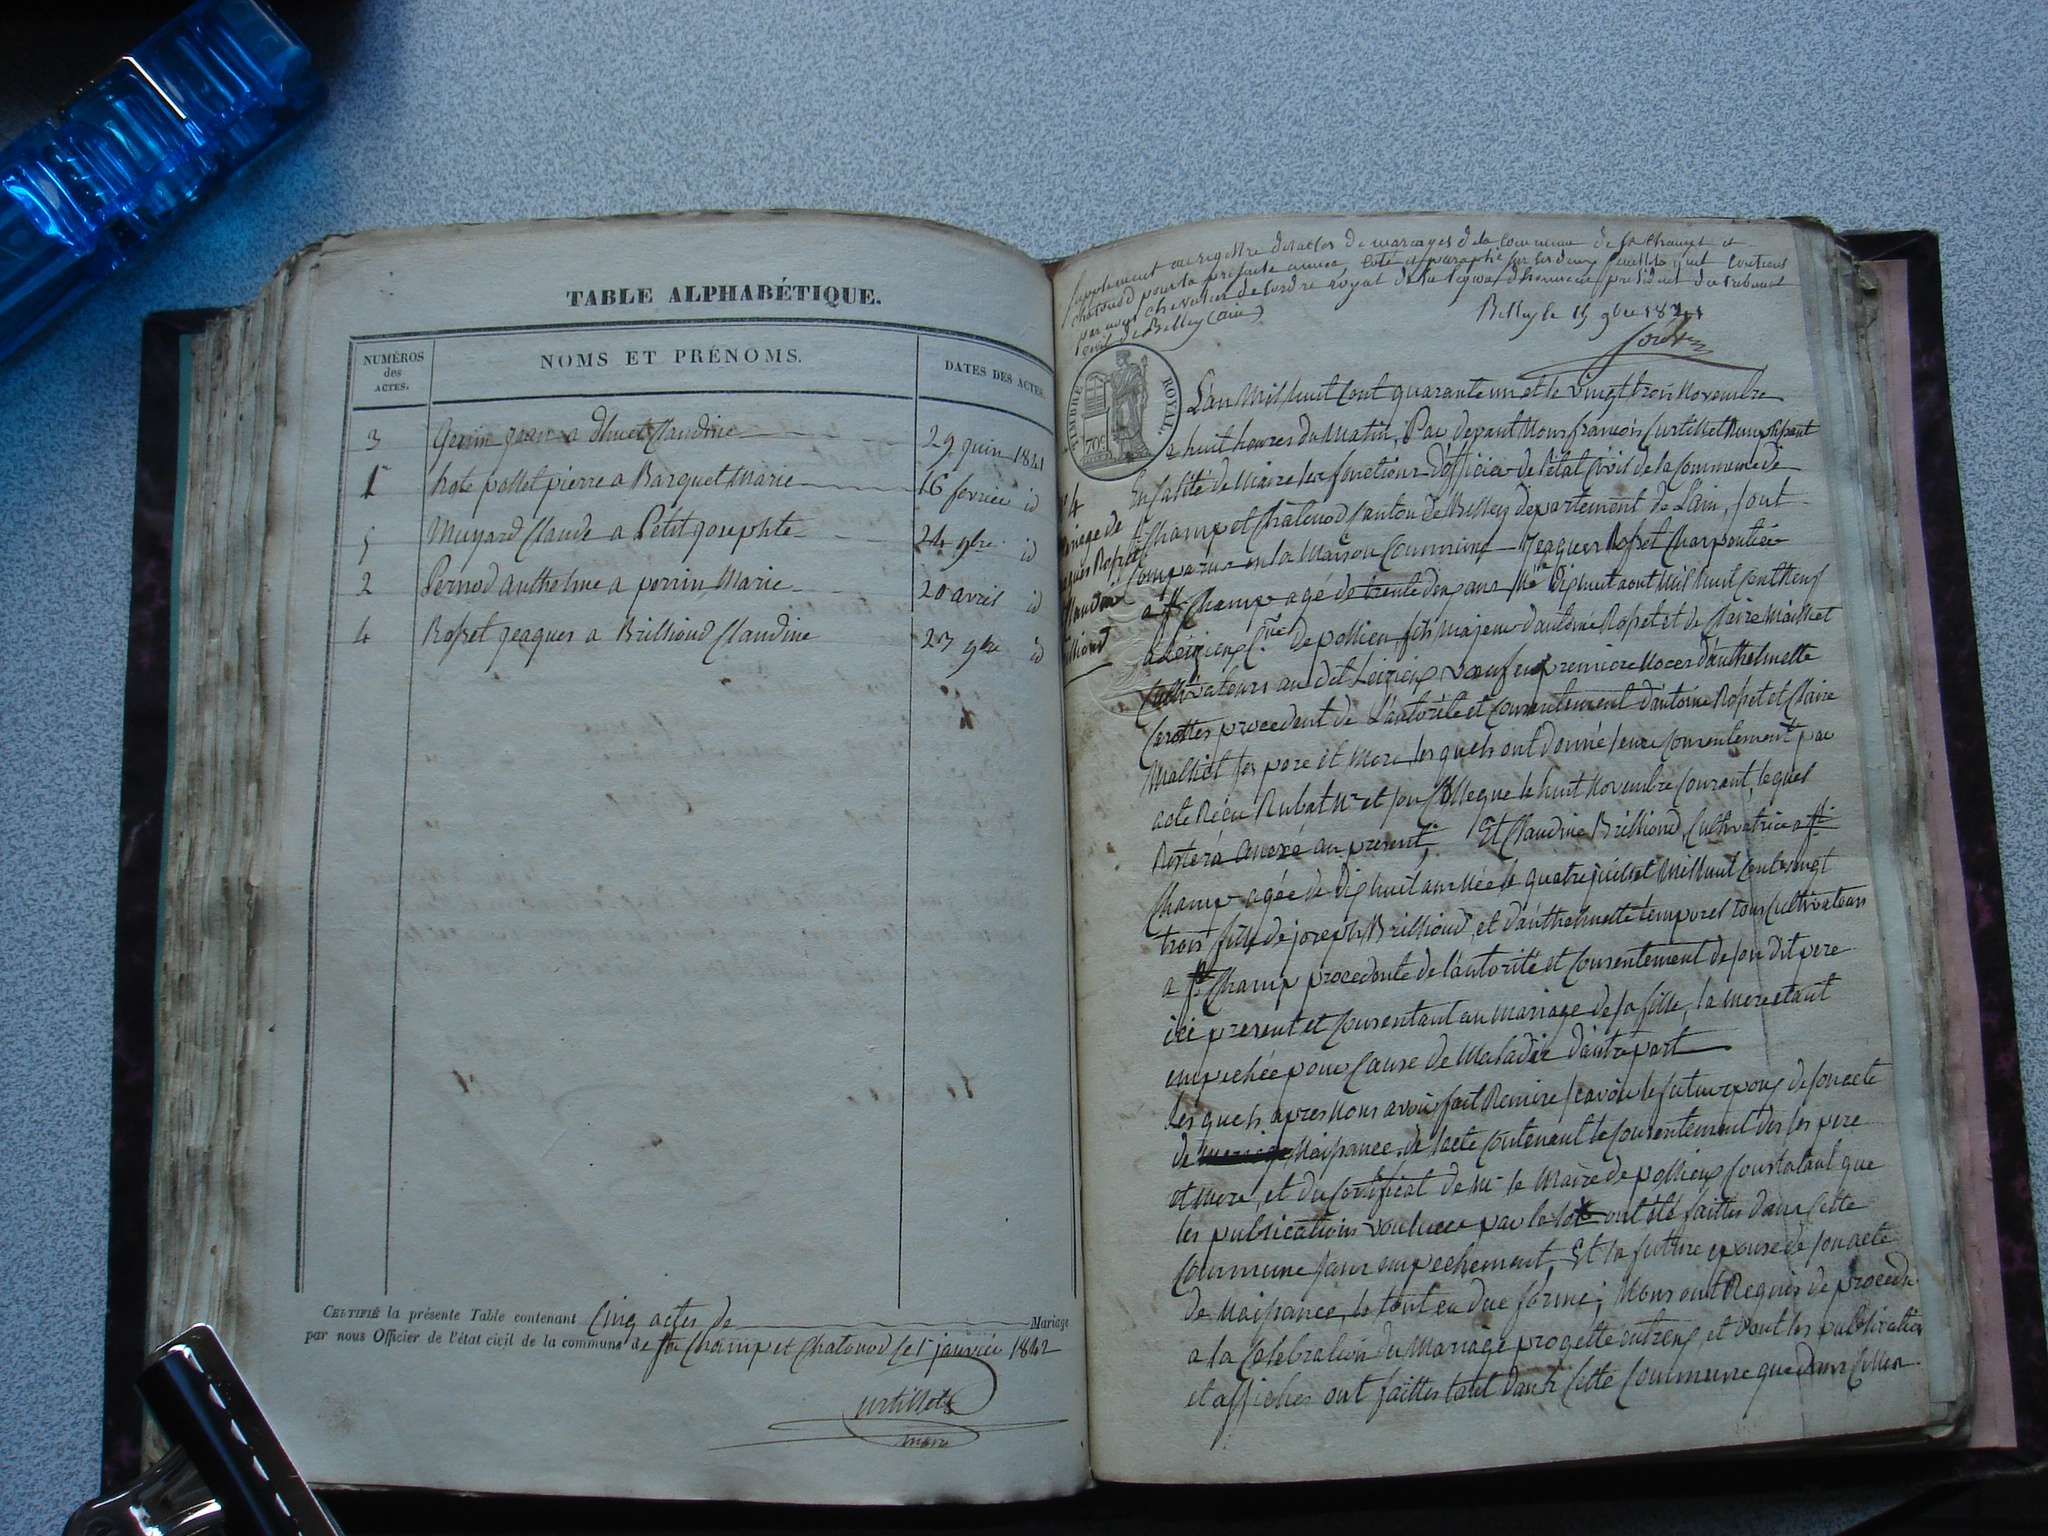 TABLE ALPHABÉTIQUE.
NUMÉROS des ACTES.
NOMS ET PRÉNOMS.
DATES DES ACTES.
3 jean a Claudine 29 juin 1841
1 pollet pierre a Barquet Marie 16 fevrier id
5 Muyard Claude a Petit josephte 24 9bre id
2 Pernod anthelme a perrin Marie 20 avril id
4 Rosset jeaques a Brillioud Claudine 23 9bre id
CERTIFIÉ la présente Table contenant Cinq actes de Mariage
par nous Officier de l'état civil de la commune de St Champ et Chatonod le 1r janvier 1842
Curtillet
maire
Supplement au registre des actes de mariages de la commune de St Champ et
chatonod pour la presente année, coté et paraphé sur les deux feuillets qu'il contient
par nous chevalier de l'ordre royal de la légion d'honneur, président du tribunal
civil de Belley (ain)
Belley le 15 9bre 1841
TIMBRE ROYAL
70c
L'an Mil huit Cent quarante un et le vingt trois Novembre
a huit heures du Matin, Par devant Nous françois Curtillet Remplissant
En qalité de Maire les fonctions d'officier de l'état Civil de la Commune de
St Champ et Chatonod Canton de Belley departement de L'ain, Sont
Comparus en la Maison Commune Jeaques Rosset Charpentier
a St Champ agé de trente deux ans Né le dix huit aout Mil huit Cent neuf
a Leizieux Cne de pollieu fils Majeur d'antoine Rosset et de Claire Maillet
Cultivateurs au dit Leizieux, veuf en premiere Noces d'anthelmette
procedent de L'autorité et Consentement d'antoine Rosset et Claire
Maillet ses pere et Mere les quels ont donné leur Consentement par
acte Réçu Rubat Nre et son Collegue le huit Novembre Courant, le quel
Restera annexé au présent, Et Claudine Brillioud Cultivatrice a St
Champ agée de dix huit ans Née le quatre juillet Mil huit Cent vingt
trois fille de joseph Brillioud, et d'anthelmette temporel tous Cultivateurs
a St Champ procedente de l'autorité et Consentement de son dit pere
ici present et Consentant au Mariage de sa fille, la mere etant
empechée pour Cause de Maladie d'autre part
Les quels apres Nous avoir fait Remise scavoir le futur epoux de son acte
de Naissance, de l'acte Contenant le Consentement des ses pere
et Mere, et du Certificat de Mr le Maire de pollieux Constatant que
les publications voulues par la loi ont été faittes dans Cette
Commune sans empechement, Et la future epouse de son acte
de Naissance, le tout en due forme; Nous ont Requis de proceder
a la Celebration du Mariage projetté entreux, et dont les publications
et affiches ont faittes tant dans Cette Commune que dans Celle
N 4
Mariage de
Jeaques Rosset
Claudine
Brillioud